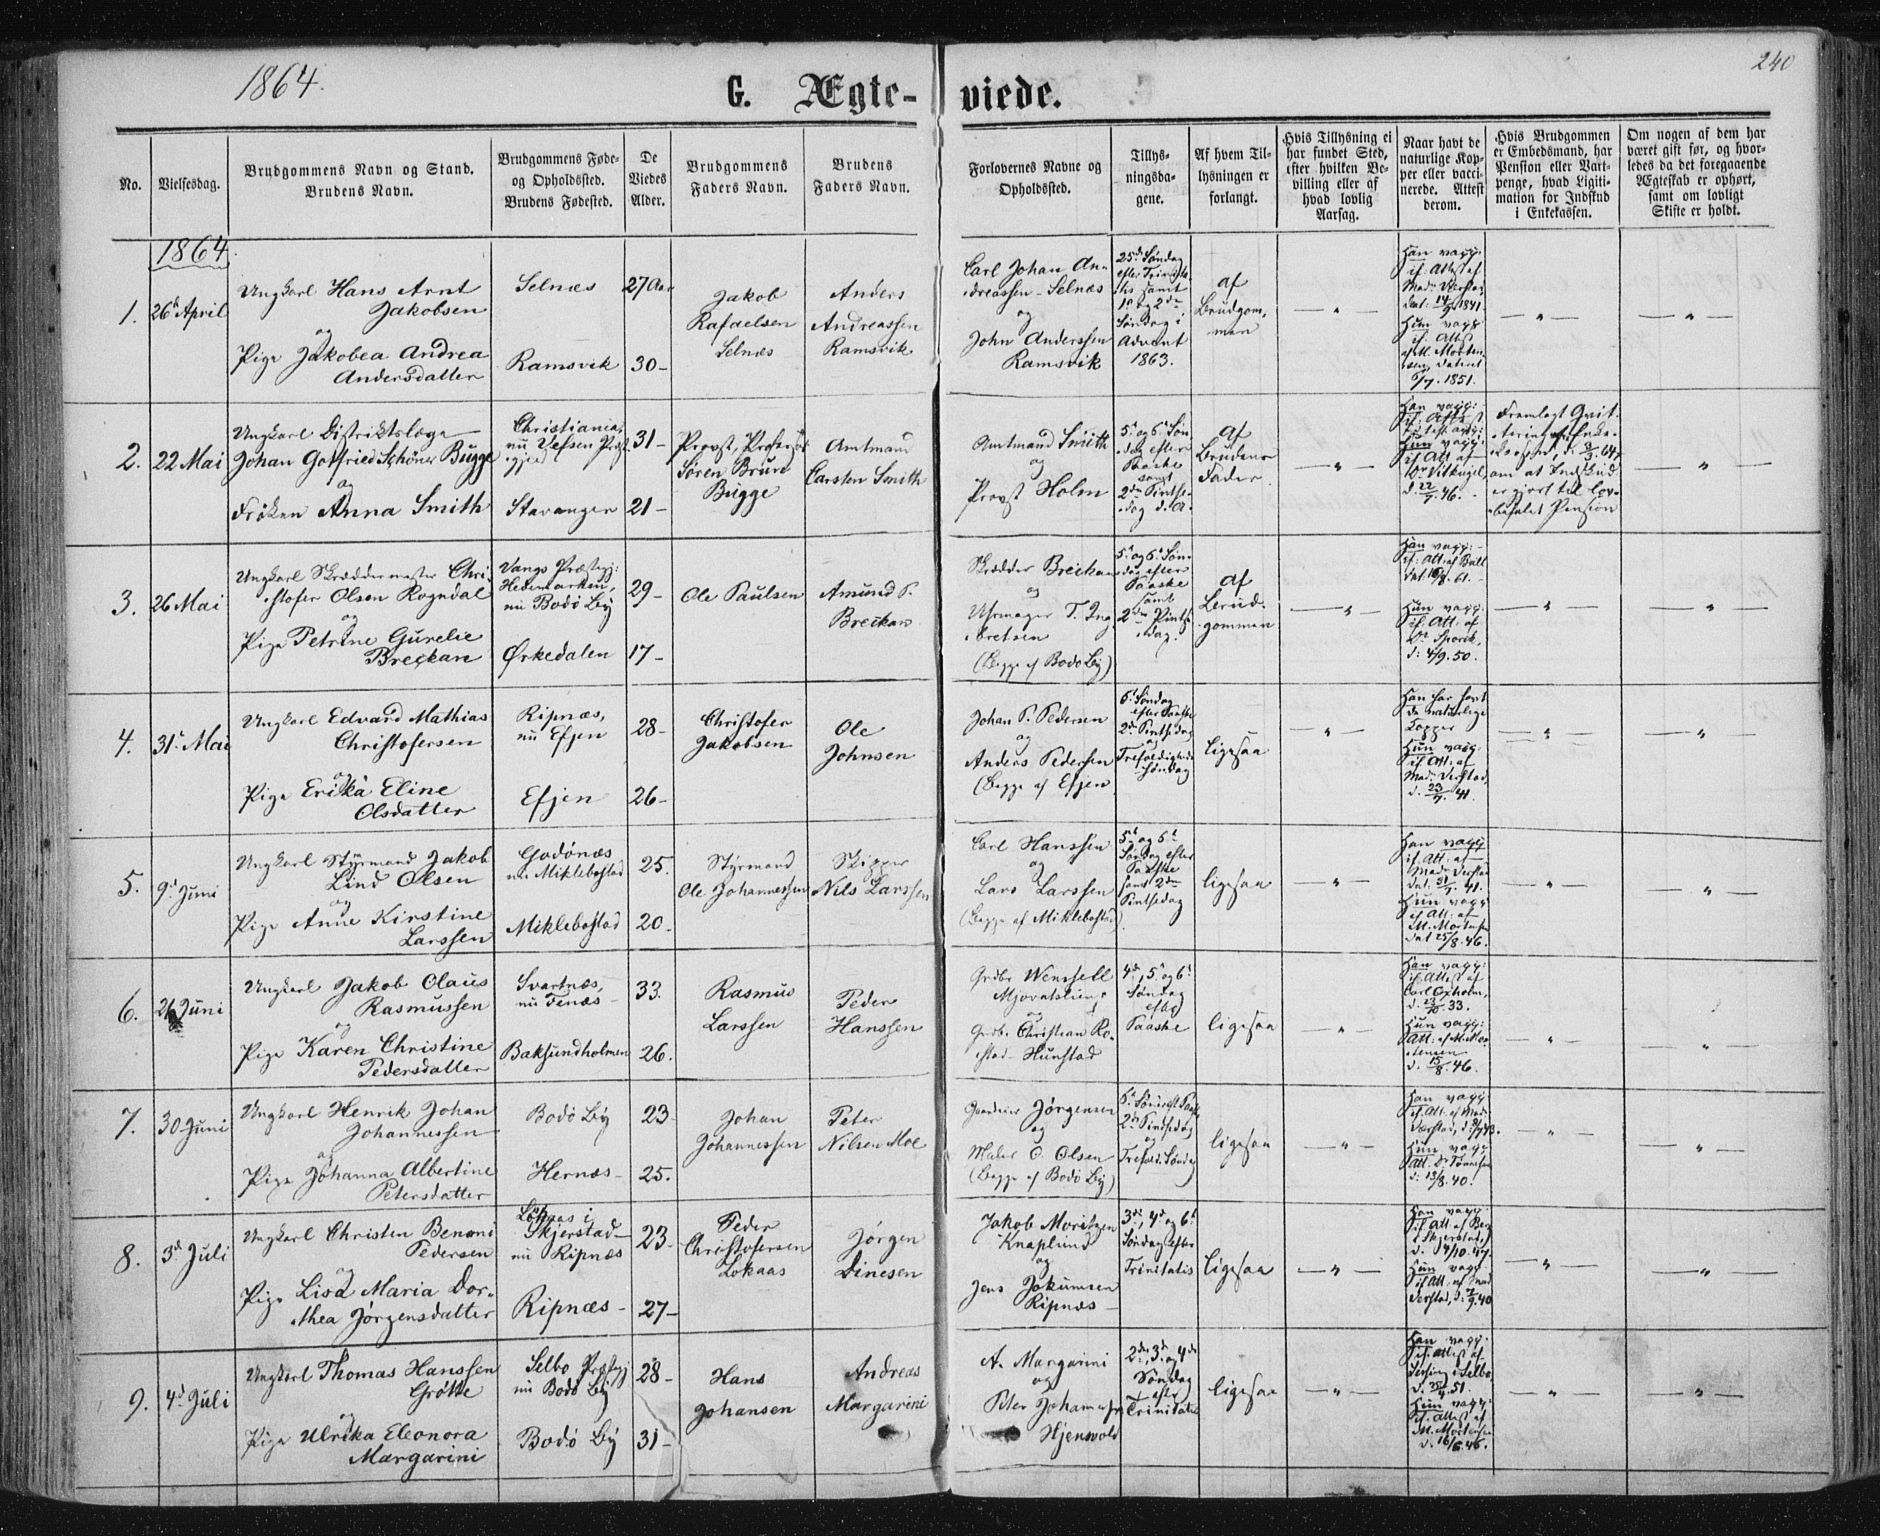 1864.
240
G. Ægte-
viede.
No.
Vielsesdag.
Brudgommens Navn og Stand.
Brudens Navn.
Brudgommens Føde-
og Opholdssted.
Brudens Fødested.
De
Viedes
Alder.
Brudgommens
Faders Navn.
Brudens
Faders Navn.
Forlovernes Navne og
Opholdssted.
Tillys-
ningsda-
gene.
Af hvem Til-
lysningen er
forlangt.
Hvis Tillysning ei
har fundet Sted,
efter hvilken Be-
villing eller af
hvad lovlig
Aarsag.
Naar havt de
naturlige Kop-
per eller vacci-
nerede. Attest
derom.
Hvis Brudgommen
er Embedsmand, har
Pension eller Vart-
penge, hvad Ligiti-
mation for Indskud
i Enkekassen.
Om nogen af dem har
været gift før, og hvor-
ledes da det foregaaende
Ægteskab er ophørt,
samt om lovligt
Skifte er holdt.
1864
1.
26d April
Ungkarl Hans Arnt
Jakobsen
og
Pige Jakobea Andrea
Andersdatter
Selnæs
Ramsvik
27 Aar
30-
Jakob
Rafaelsen
Selnæs
Anders
Andreassen
Ramsvik
Carl Johan An-
dreassen - Selnæs
og
John Anderssen
Ramsvik
25d Søndag
efter Trinita-
tis samt
1ste og 2den
Søndag i
Advent
1863.
af
Brudgom-
men
Han vacc:
if. Att. af
Mad. Værstad,
dat: 14/9 1841.
Hun vacc:
if. Att.
af M. Morten-
sen, dateret
6/7. 1851.
2.
22 Mai
Ungkarl Distriktslæge
Johan Gottfried Schöner Bugge
og
Frøken Anna Smith
Christiania,
nu Vefsen Præst-
egjeld
Stavanger
31-
21-
Provst, Professor
Søren Bruun
Bugge
Amtmand
Carsten Smith
Amtmand Smith
og
Provst Holm
5t og 6t Søn-
dag efter
Paaske
samt
2den Pintse-
dag d. A.
af
Brudens
Fader
Han vacc:
Hun vacc:
if Att. af
Dr Vitkugel,
d. 22/7. 46.
Fremlagt Qvit-
tering af Enke-
om at Indskud
er gjort til lov-
befalet Pension
3.
26 Mai
Ungkarl Skræddermester Chri-
stofer Olsen Rogndal
og
Pige Petrine Gurelie
Breckan
Vangs Præstegj:
Hedemarken,
nu Bodø By
Ørkedalen
29-
17-
Ole Paulsen
Amund P.
Breckan
Skrædder Breckan
og
Uhrmager T. Ing-
bretsen
(Begge af Bodø By)
5t og 6t Søn-
dag efter
Paaske
samt
2den Pintse-
dag.
af
Brud-
gommen
Han vacc:
if: Att: af Bull
dat: 16/8. 61.
Hun vacc:
if. Att: af
Dr Sporck,
d: 4/9. 50.
4.
31t Mai
Ungkarl Edvard Mathias
Christofersen
og
Pige Erika Eline
Olsdatter
Ripnæs,
nu Efjen
Efjen
28-
26-
Christofer
Jakobsen
Ole
Johnsen
Johan P. Pedersen
og
Anders Pedersen
(Begge af Efjen)
6t Søndag
efter Paaske
2den Pintsedag
og
Trefoldigheds
Søndag
ligesaa
Han har havt
de naturlige
Kopper
Hun vacc:
if. Att: af
Mad. Verstad,
d. 23/7. 41.
5.
9d Juni
Ungkarl Styrmand Jakob
Lind Olsen
og
Pige Anne Kirstine
Larssen
Godønæs
nu Miklebostad
Miklebostad
25.
20.
Styrmand
Ole Johannessen
Skipper
Nils Larssen
Carl Hanssen
og
Lars Larssen
(Begge af Miklebostad)
5t og 6t
Søndag efter
Paaske
samt 2den
Pintsedag
ligesaa
Han vacc:
if. Att. af
Mad. Verstad
dat. 21/7. 41.
Hun vacc:
if Att: af
M. Mortensen
dat 25/8. 46.
6.
26 Juni
Ungkarl Jakob Olaus
Rasmussen
og
Pige Karen Christine
Pedersdatter
Svartnæs,
nu Tenæs
Baksundholmen
33.
26.
Rasmus
Larssen
Peder
Hanssen
Grdbr Wenssell
og
Grdbr Christian Ro-
estad Hunstad
4de, 5t og 6t
Søndag
efter
Paaske
ligesaa
Han vacc:
if. Att. af
Carl Oxholm,
d. 23/10. 33.
Hun vacc:
Att: af M. Mor-
tensen
d. 15/8. 46.
7.
30 Juni
Ungkarl Henrik Johan
Johannessen
og
Pige Johanna Albertine
Petersdatter
Bodø By
Hernæs
23-
25.
Johan
Johannessen
Peter
Nilsen Moe
Jørgensen
og
Maler O. Olsen
(Begge af Bodø By)
6t Sønd. eft Paaske
2den Pintsedag
og
Trefold. Søndag
ligesaa
Han vacc:
if. Att. af Mad.
Værstad,
Hun vacc:
Att. Dr Tønnesen
d: 13/8. 40.
8.
3d Juli
Ungkarl Christen Benoni
Pedersen
og
Pige Lisa Maria Dor-
thea Jørgensdatter
Løkaas i
Skjerstad-
nu Ripnæs
Ripnæs
23-
27-
Peder
Christofersen
Lokaas
Jørgen
Dinesen
Jakob Moritzen
Knaplund
og
Jens Jokumsen
Ripnæs
3die, 4de og 6t
Søndag efter
Trinitatis
ligesaa
Han vacc:
if. Att. af Berg
i Skjerstad,
d. 14/10. 47.
Hun vacc:
if Att: af Mad
Verstad, d: 2/9. 40
9.
4d Juli
Ungkarl Thomas Hanssen
Grøtte
og
Pige Ulrika Eleonora
Margarini
Selbo Præstegj
nu Bodø By
Bodø By
28-
31-
Hans
Johansen
Andreas
Margarini
A. Margarini
og
Peter Johannessen
Hjenvold
2den, 3die og 4de
Søndag
efter
Trinitatis
ligesaa
Han vacc:
if. Attest af
i Selbo
51.
Hun vacc:
if. Attest af
M. Mortensen
d. 16/6. 46.